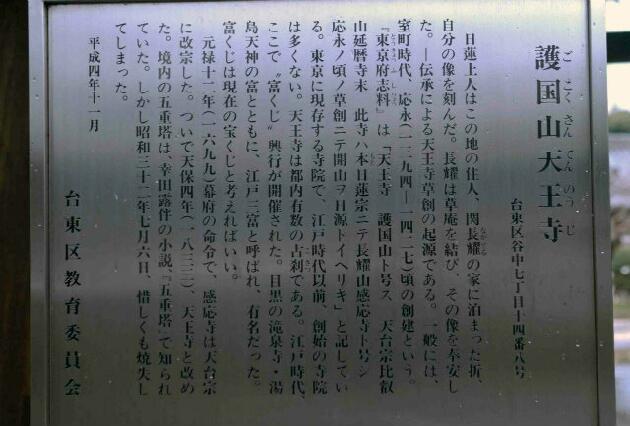 護国山天王寺
ごこくさんてんのうじ
台東区谷中七丁目十四番八号
日蓮上人はこの地の住人、関長耀の家に泊まった折、
ながてる
自分の像を刻んだ。長耀は草庵を結び、その像を奉安し
た。―伝承による天王寺草創の起源である。一般には、
室町時代、応永(一三九四―一四二七)頃の創建という。
『東京府志料』は「天王寺 護国山ト号ス 天台宗比叡
山延暦寺末 此寺ハ本日蓮宗ニテ長耀山感応寺ト号シ
応永ノ頃ノ草創ニテ開山ヲ日源トイヘリキ」と記してい
る。東京に現存する寺院で、江戸時代以前、創始の寺院
は多くない。天王寺は都内有数の古刹である。江戸時代、
ここで〝富くじ〟興行が開催された。目黒の滝泉寺・湯
島天神の富とともに、江戸三富と呼ばれ、有名だった。
富くじは現在の宝くじと考えればいい。
元禄十二年(一六九九)幕府の命令で、感応寺は天台宗
に改宗した。ついで天保四年(一八三三)、天王寺と改め
た。境内の五重塔は、幸田露伴の小説、『五重塔』で知られ
ていた。しかし昭和三十二年七月六日、惜しくも焼失し
てしまった。
平成四年十一月
台東区教育委員会